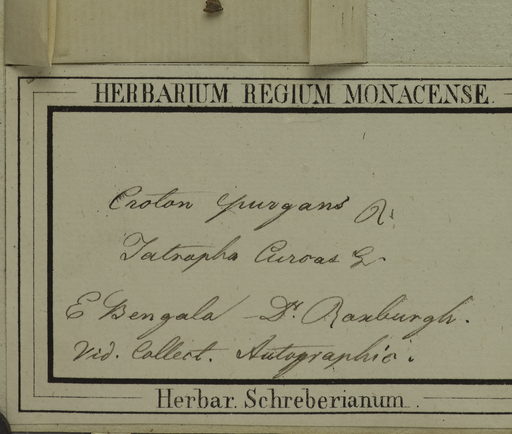 HERBARIUM REGIUM MONACENSE.
Croton purgans R.
Jatropha Curcas L.
E Bengala Dr. Roxburgh.
Vid. Collect. Autographic.
Herbar. Schreberianum.